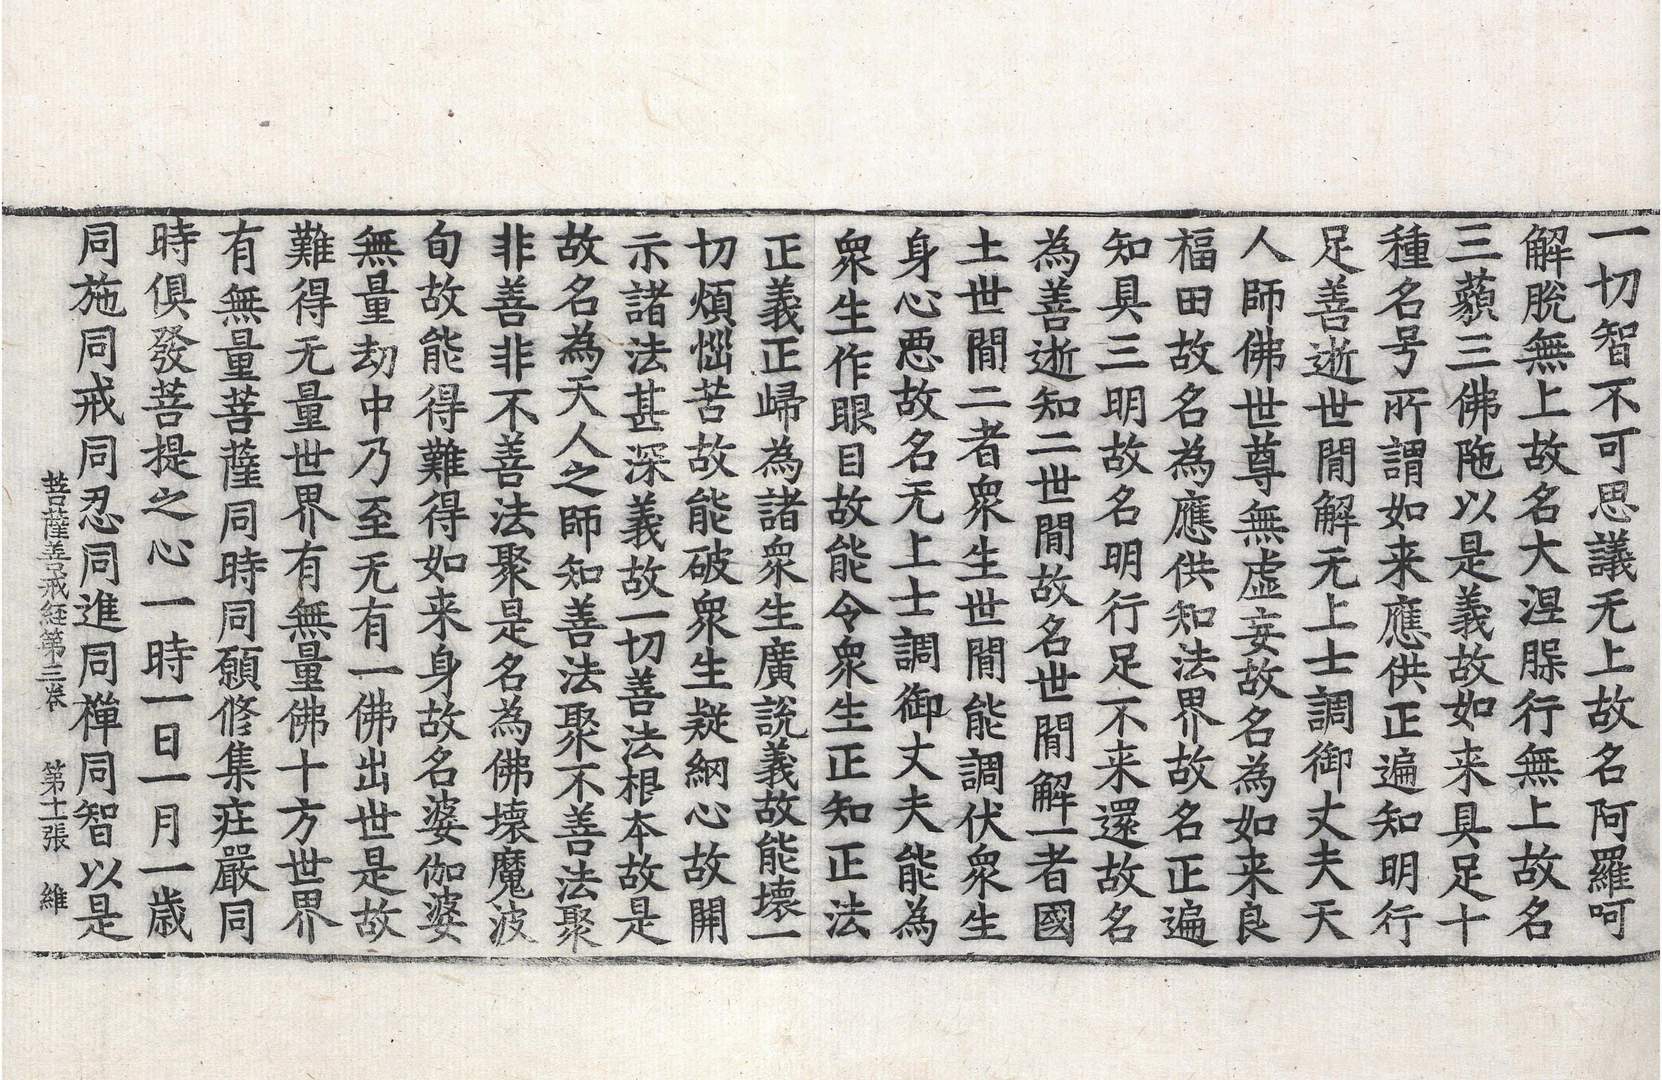 一切智不可思議无上故名阿羅呵
解脫無上故名大涅脲行無上故名
三藐三佛陁以是義故如来具足十
種名号所謂如来應供正遍知明行
足善逝世閒解无上士調御丈夫天
人師佛世尊無虛妄故名為如来良
福田故名為應供知法界故名正遍
知具三明故名明行足不来還故名
為善逝知二世閒故名世閒解一者國
土世閒二者衆生世閒能調伏衆生
身心悪故名无上士調御丈夫能為
衆生作眼目故能令衆生正知正法
正義正歸為諸衆生廣說義故能壞一
切煩惱苦故能破衆生疑網心故開
示諸法甚深義故一切善法根本故是
故名為天人之師知善法聚不善法聚
非善非不善法聚是名為佛壞魔波
旬故能得難得如来身故名婆伽婆
無量劫中乃至无有一佛出世是故
難得无量世界有無量佛十方世界
有無量菩薩同時同願俻集庄嚴同
時俱發菩提之心一時一日一月一歲
同施同戒同忍同進同禪同智以是
菩薩善戒経第三卷 第十一張 維